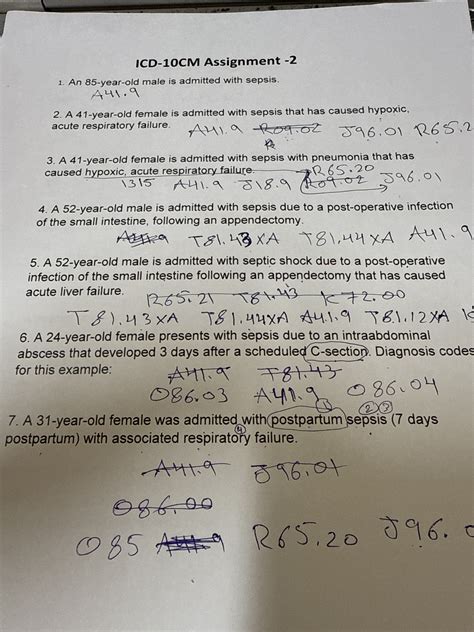 ICD-10CM Assignment -2
1. An 85-year-old male is admitted with sepsis.
A41.9
2. A 41-year-old female is admitted with sepsis that has caused hypoxic,
acute respiratory failure. A41.9 R09.02 J96.01 R65.2
3. A 41-year-old female is admitted with sepsis with pneumonia that has
caused hypoxic, acute respiratory failure. R65.20
A41.9 J18.9 R09.02 J96.01
4. A 52-year-old male is admitted with sepsis due to a post-operative infection
of the small intestine, following an appendectomy.
T81.43XA T81.44XA A41.9
5. A 52-year-old male is admitted with septic shock due to a post-operative
infection of the small intestine following an appendectomy that has caused
acute liver failure. R65.21 T81.43 K72.00
T81.43XA T81.44XA A41.9 T81.12XA
6. A 24-year-old female presents with sepsis due to an intraabdominal
abscess that developed 3 days after a scheduled C-section. Diagnosis codes
for this example: A41.9 T81.43
O86.03 A41.9 O86.04
7. A 31-year-old female was admitted with postpartum sepsis (7 days
postpartum) with associated respiratory failure.
A41.9 J96.01
O86.00
O85 R65.20 J96.0